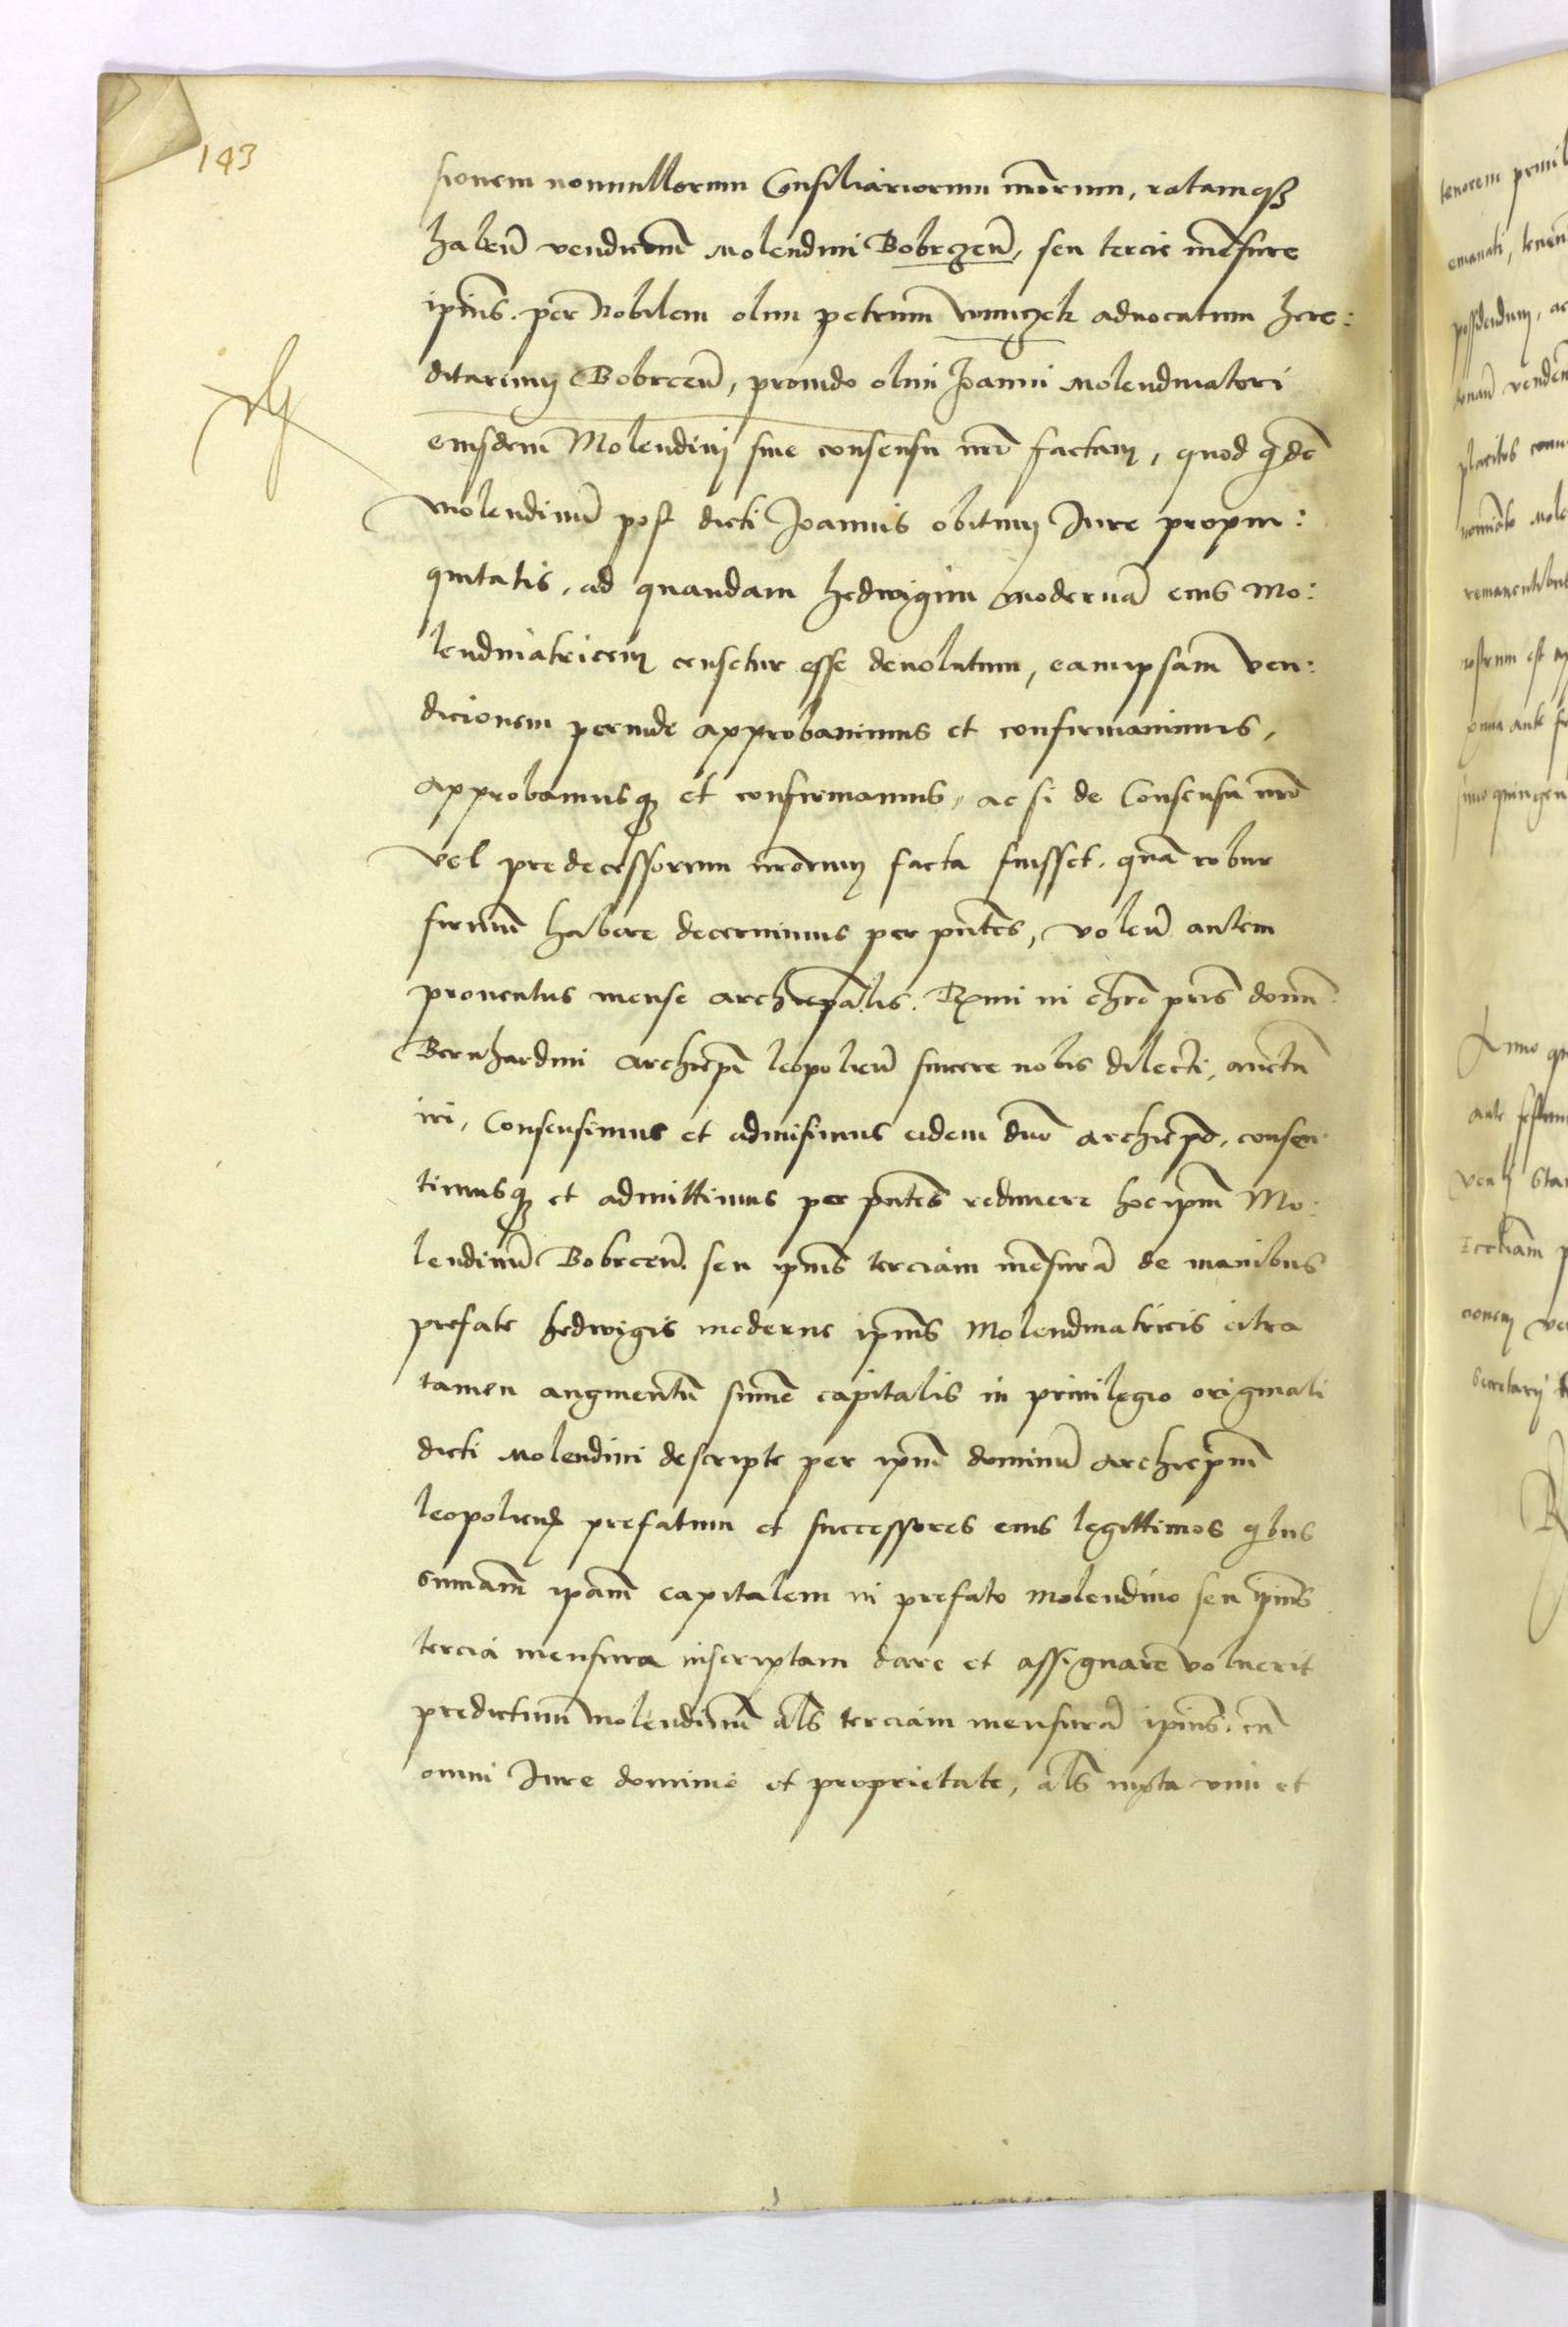 143
sionem nonnullorum Consiliariorum nr̄orum, ratamqȝ
haben̄ vendicionē Molendini Bobrczen̄, seu tercie mēsure
ip̄ius per Nobilem olim petrum winczek aduocatum here:
ditarium Bobrcen̄, prouido olim Joanni Molendinatori
eiusdem Molendini sine consensu nr̄o factam, quod qd̄e
Molendinū post dicti Joannis obitum Jure propin:
quitatis, ad quandam hedwigim modernā eius Mo:
lendinatricem censetur esse deuolutum, eamipsam ven:
dicionem perinde approbauimus et confirmauimus,
approbamusqȝ et confirmamus, ac si de Consensu nr̄o
vel predecessorum nr̄orum facta fuisset, quā robur
firmum habere decernimus per pn̄tes, volen̄ autem
prouentus mense archiep̄alis Rx̄mi in chr̄o pr̄is domini
Bernhardini archiep̄i leopolien̄ sincere nobis dilecti, auctū
iri, Consensimus et admisimus eidem dn̄o archiep̄o, consen
timusqȝ et admittimus per pn̄tes redimere hocip̄m Mo:
lendinū Bobrcen̄ seu ip̄ius terciam mēsurā de manibus
prefate hedwigis moderne ip̄ius Molendinatricis citra
tamen augmentū sum̄e capitalis in priuilegio originali
dicti Molendini descripte per ip̄m dominū archiep̄m
leopolien̄ prefatum et successores eius legittimos qbus
summam ip̄am capitalem in prefato molendino seu ip̄ius
tercia mensura inscriptam dare et assignare voluerit
predictum molendinū al̄s terciam mensurā ip̄ius cū
omni Jure dominio et proprietate, al̄s iuxta vim et
tenorem
emanati,
possidendum, ac
placitis
remanentibus
nostrum est
ante
Anno
ante festum